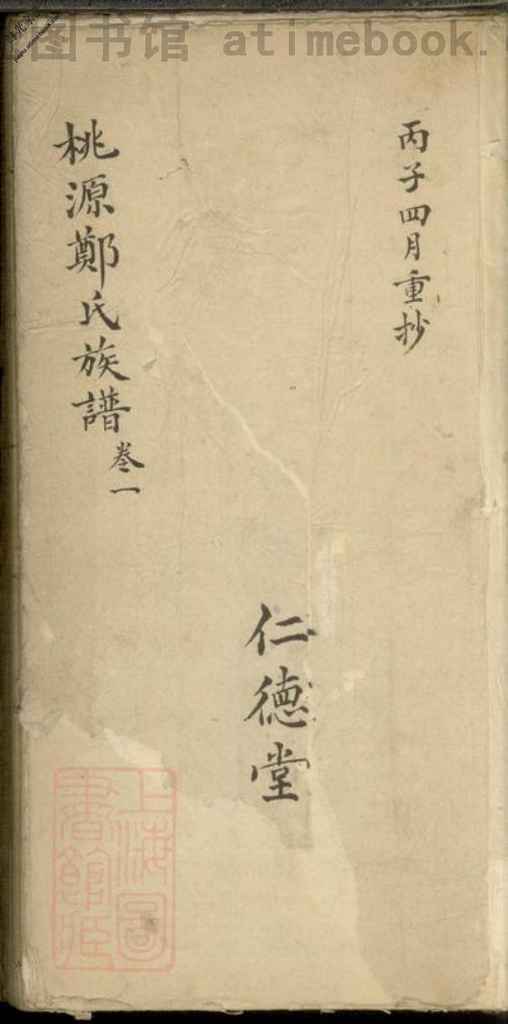 图书馆 atimebook.
丙子四月重抄
仁德堂
桃源鄭氏族譜 卷一
上海圖
書館藏